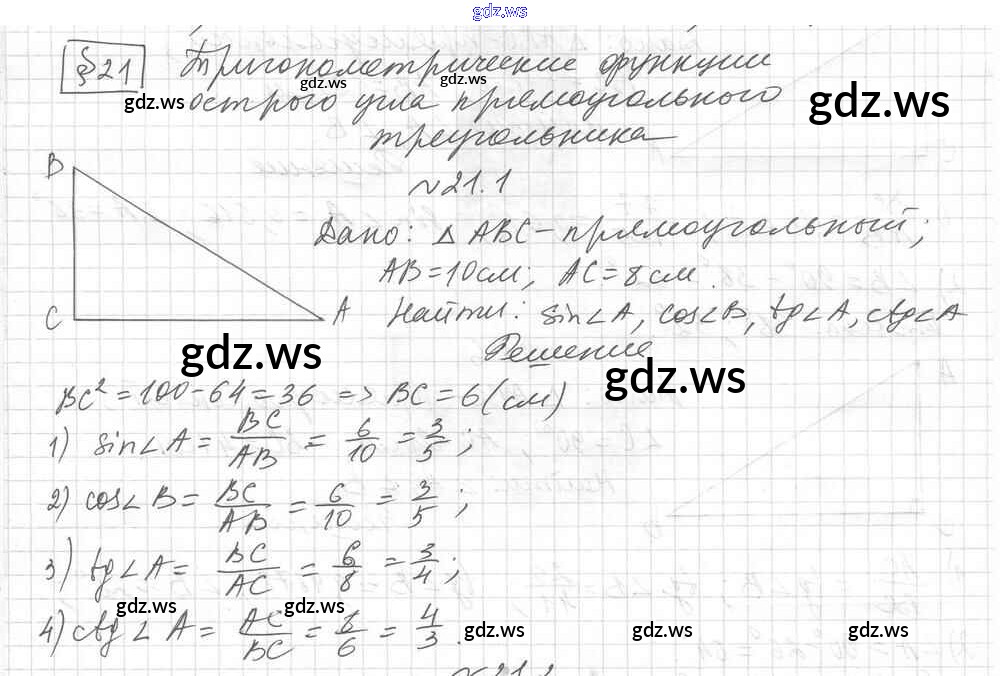 gdz.ws
§21 Тригонометрические функции
острого угла прямоугольного
треугольника
gdz.ws gdz.ws gdz.ws gdz.ws
B
C
A
№21.1
Дано: △ ABC - прямоугольный;
AB = 10 см; AC = 8 см.
Найти: sin∠A, cos∠B, tg∠A, ctg∠A
Решение
gdz.ws gdz.ws
BC² = 100 - 64 = 36 => BC = 6 (см)
1) sin∠A = BC/AB = 6/10 = 3/5;
2) cos∠B = BC/AB = 6/10 = 3/5;
3) tg∠A = BC/AC = 6/8 = 3/4;
4) ctg∠A = AC/BC = 8/6 = 4/3.
gdz.ws gdz.ws gdz.ws gdz.ws gdz.ws